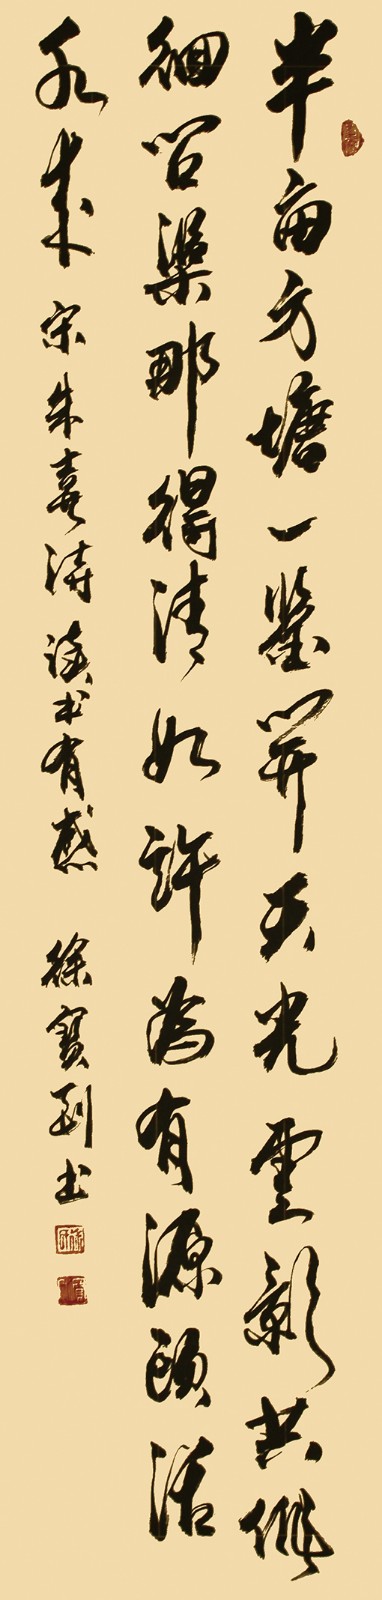 半畝方塘一鑒開天光雲影共徘
徊問渠那得清如許為有源頭活
水來 宋朱熹詩 讀書有感 徐寶到書